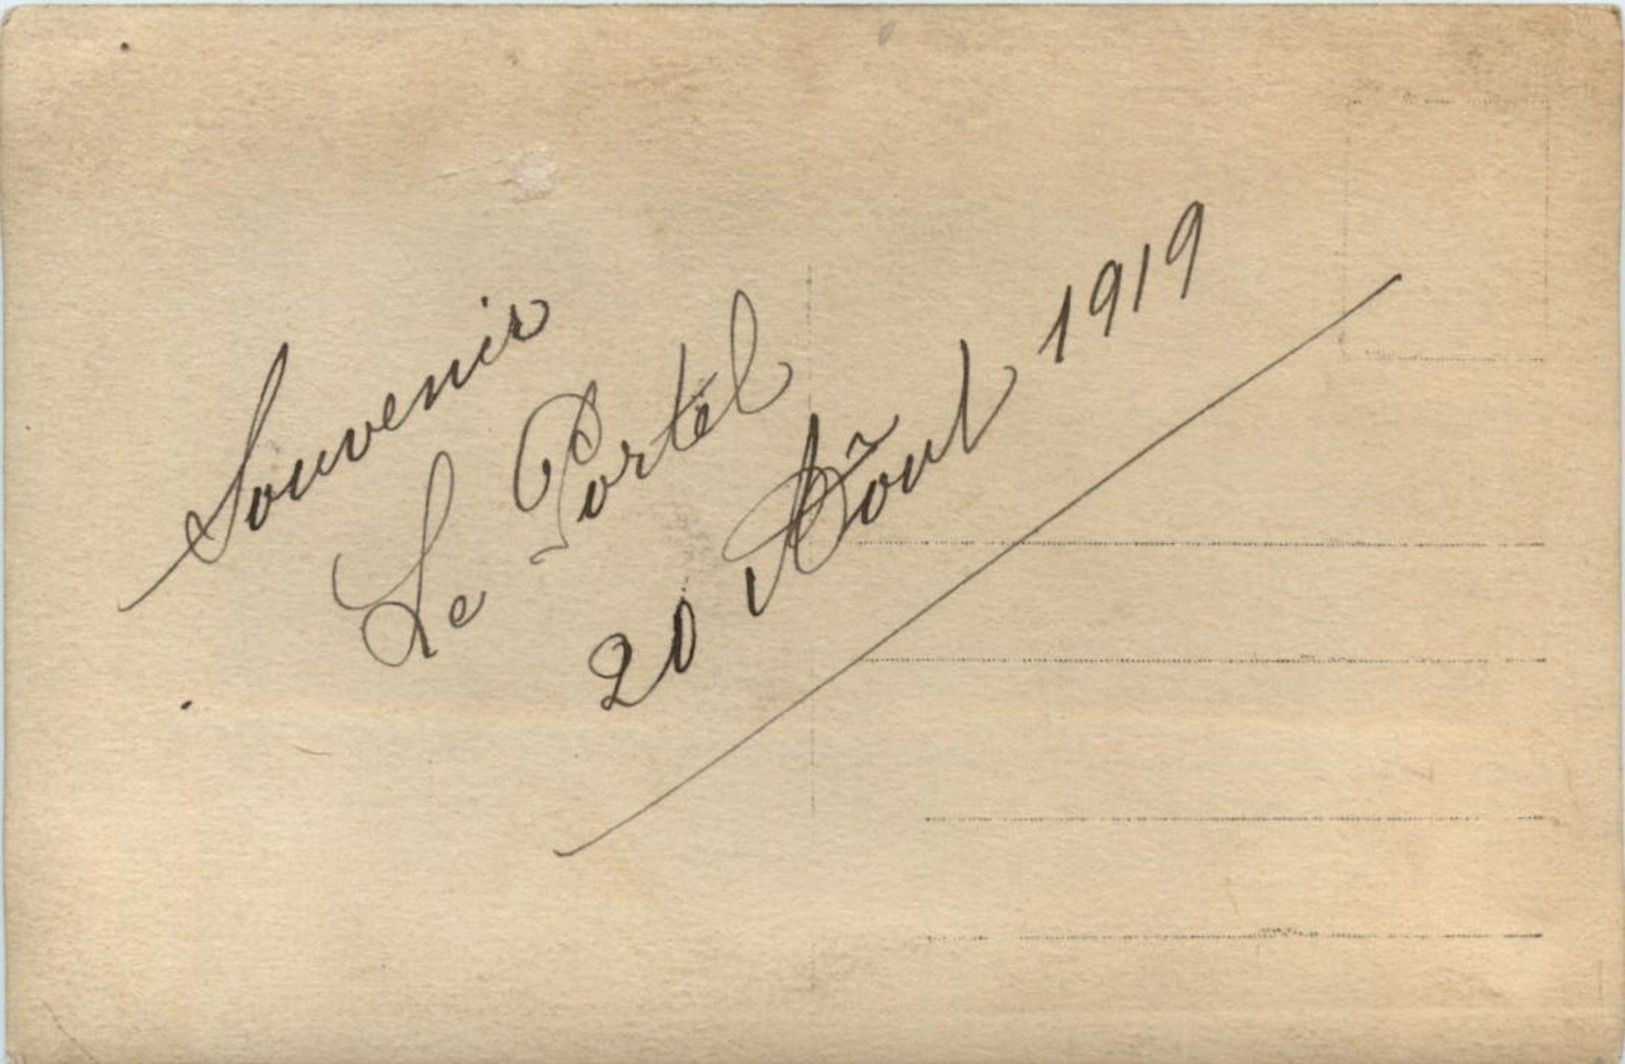 Souvenir
Le Portel
20 Août 1919